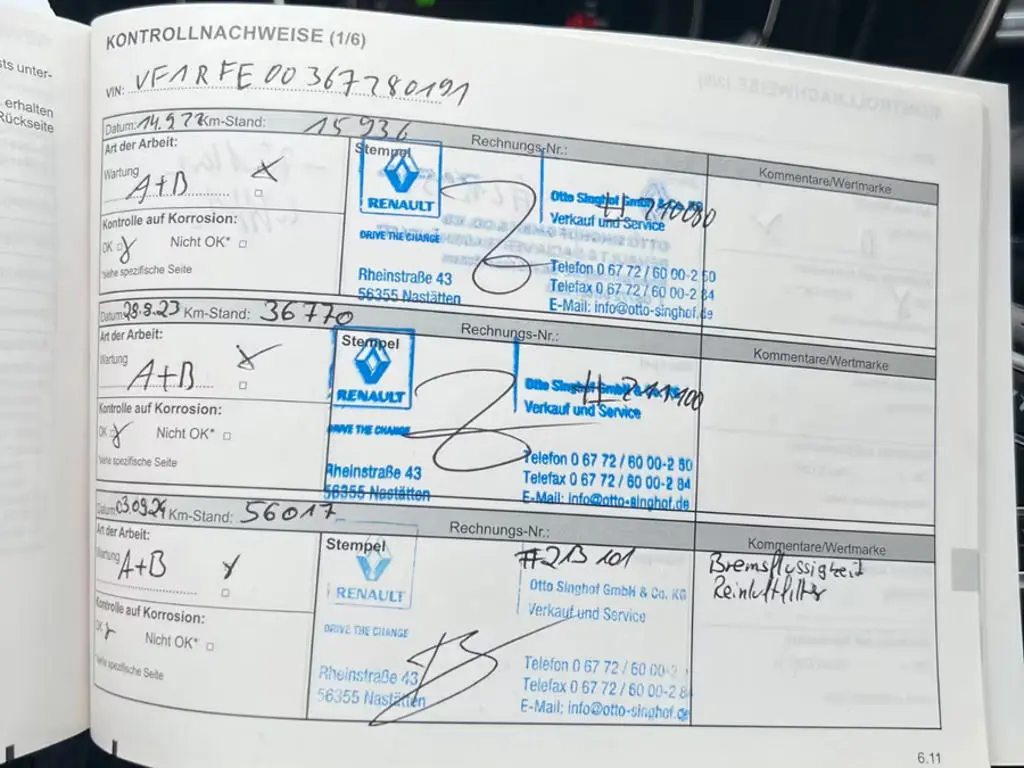 sts unter-
erhalten
Rückseite
KONTROLLNACHWEISE (1/6)
VIN: VF1RFE00367280191
Datum: 14.9.22 Km-Stand: 15936
Rechnungs-Nr.:
Kommentare/Wertmarke
Art der Arbeit:
Wartung
A+B
Kontrolle auf Korrosion:
OK Nicht OK*
*Siehe spezifische Seite
Stempel
RENAULT
DRIVE THE CHANGE
Rheinstraße 43
56355 Nastätten
Otto Singhof GmbH & Co. KG
Verkauf und Service
Telefon 0 67 72 / 60 00-2 80
Telefax 0 67 72 / 60 00-2 84
E-Mail: info@otto-singhof.de
Datum: 28.8.23 Km-Stand: 36770
Rechnungs-Nr.:
Kommentare/Wertmarke
Art der Arbeit:
Wartung
A+B
Kontrolle auf Korrosion:
OK Nicht OK*
*Siehe spezifische Seite
Stempel
RENAULT
DRIVE THE CHANGE
Rheinstraße 43
56355 Nastätten
Otto Singhof GmbH & Co. KG
Verkauf und Service
Telefon 0 67 72 / 60 00-2 80
Telefax 0 67 72 / 60 00-2 84
E-Mail: info@otto-singhof.de
Datum: 03.09.24 Km-Stand: 56017
Rechnungs-Nr.:
Kommentare/Wertmarke
Art der Arbeit:
Wartung
A+B
Kontrolle auf Korrosion:
OK Nicht OK*
*Siehe spezifische Seite
Stempel
RENAULT
DRIVE THE CHANGE
Rheinstraße 43
56355 Nastätten
#213101
Otto Singhof GmbH & Co. KG
Verkauf und Service
Telefon 0 67 72 / 60 00-2
Telefax 0 67 72 / 60 00-2 8
E-Mail: info@otto-singhof.de
Bremsflüssigkeit
Reinluftfilter
6.11